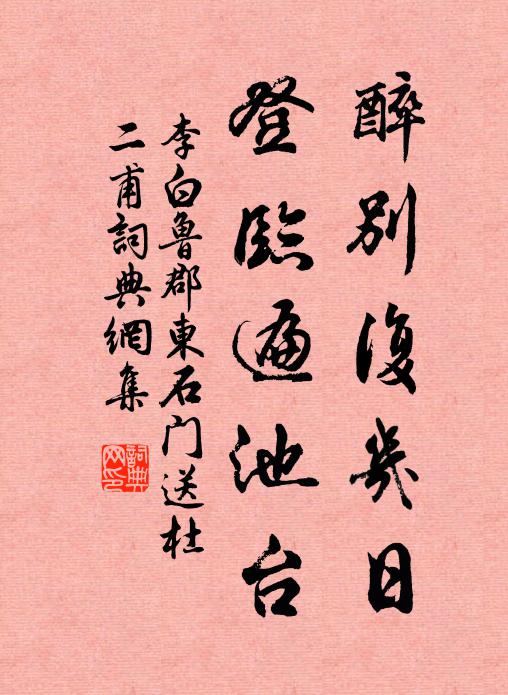 醉别復幾日
登臨遍池台
李白魯郡東石門送杜
二甫詞典網集
詞典
网印